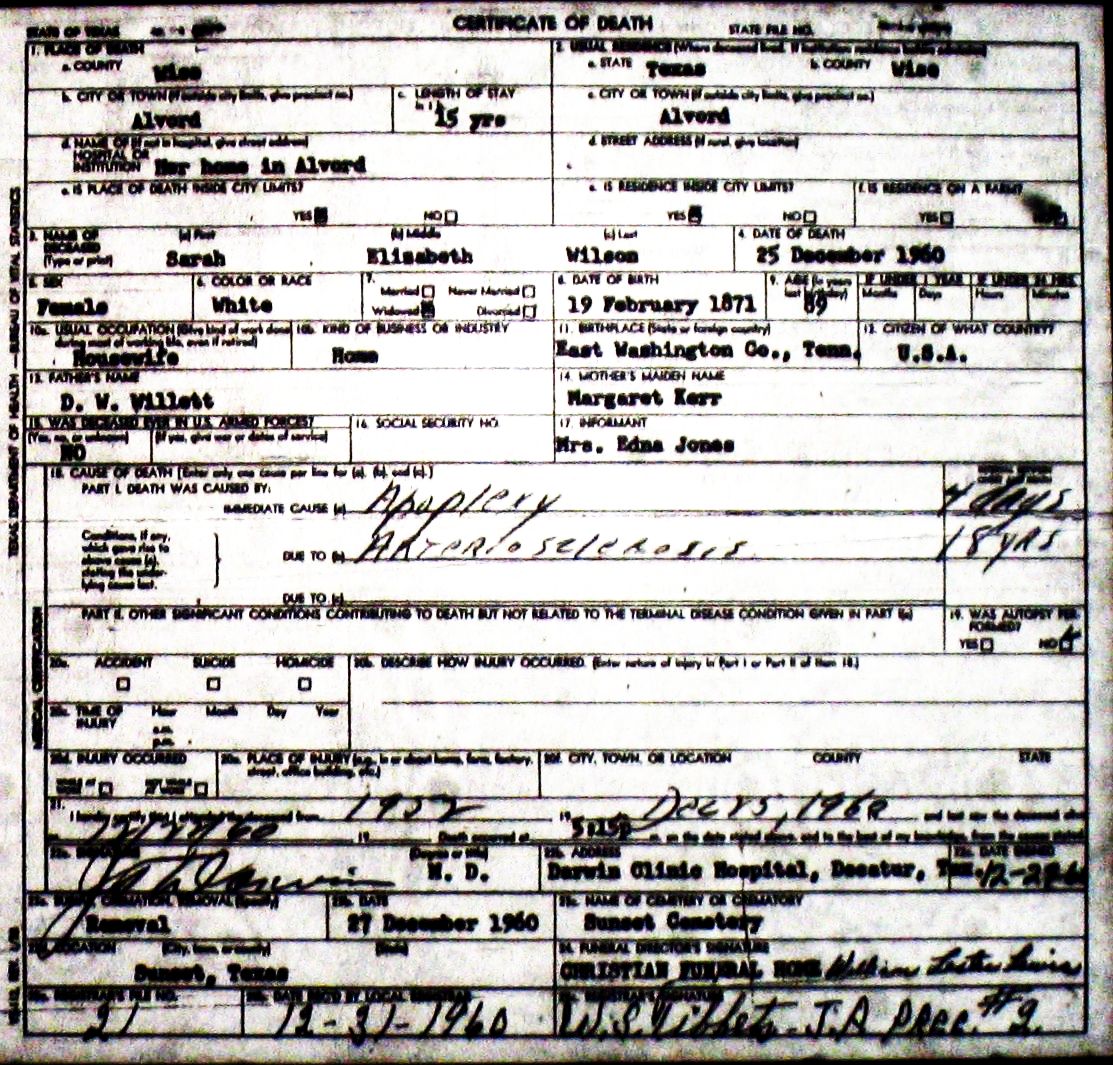 STATE OF TEXAS CERTIFICATE OF DEATH STATE FILE NO.
1. PLACE OF DEATH 2. USUAL RESIDENCE (Where deceased lived. If institution: residence before admission)
a. COUNTY Wise a. STATE Texas b. COUNTY Wise
b. CITY OR TOWN (If outside city limits, give precinct no.) c. LENGTH OF STAY c. CITY OR TOWN (If outside city limits, give precinct no.)
Alvord 15 yrs Alvord
d. NAME OF (If not in hospital, give street address) d. STREET ADDRESS (If rural, give location)
HOSPITAL OR
INSTITUTION Her home in Alvord
e. IS PLACE OF DEATH INSIDE CITY LIMITS? e. IS RESIDENCE INSIDE CITY LIMITS? f. IS RESIDENCE ON A FARM?
YES NO YES NO YES NO
3. NAME OF DECEASED (a) First (b) Middle (c) Last 4. DATE OF DEATH
(Type or print) Sarah Elizabeth Wilson 25 December 1960
5. SEX 6. COLOR OR RACE 7. 8. DATE OF BIRTH 9. AGE (In years last birthday) IF UNDER 1 YEAR IF UNDER 24 HRS.
Married Never Married Months Days Hours Minutes
Female White Widowed Divorced 19 February 1871 89
10a. USUAL OCCUPATION (Give kind of work done during most of working life, even if retired) 10b. KIND OF BUSINESS OR INDUSTRY 11. BIRTHPLACE (State or foreign country) 12. CITIZEN OF WHAT COUNTRY?
Housewife Home East Washington Co., Tenn. U.S.A.
13. FATHER'S NAME 14. MOTHER'S MAIDEN NAME
D. W. Willett Margaret Kerr
15. WAS DECEASED EVER IN U.S. ARMED FORCES? 16. SOCIAL SECURITY NO. 17. INFORMANT
(Yes, no, or unknown) (If yes, give war or dates of service)
NO Mrs. Edna Jones
18. CAUSE OF DEATH [Enter only one cause per line for (a), (b), and (c).]
PART I. DEATH WAS CAUSED BY:
IMMEDIATE CAUSE (a) Apoplexy 4 days
Conditions, if any, which gave rise to above cause (a), stating the underlying cause last.
DUE TO (b) Arteriosclerosis 18 yrs
DUE TO (c)
PART II. OTHER SIGNIFICANT CONDITIONS CONTRIBUTING TO DEATH BUT NOT RELATED TO THE TERMINAL DISEASE CONDITION GIVEN IN PART I(a) 19. WAS AUTOPSY PERFORMED?
YES NO
20a. ACCIDENT SUICIDE HOMICIDE 20b. DESCRIBE HOW INJURY OCCURRED. (Enter nature of injury in Part I or Part II of item 18.)
20c. TIME OF INJURY Hour Month Day Year
a.m.
p.m.
20d. INJURY OCCURRED 20e. PLACE OF INJURY (e.g., in or about home, farm, factory, street, office building, etc.) 20f. CITY, TOWN, OR LOCATION COUNTY STATE
21. I hereby certify that I attended the deceased from 1952 Dec 25, 1960 and last saw the deceased alive
19 Death occurred at 5:15p m. on the date stated above, and to the best of my knowledge, from the causes stated
22a. SIGNATURE (Degree or title) 22b. ADDRESS 22c. DATE SIGNED
M. D. Darwin Clinic Hospital, Decatur, Tex.
23a. BURIAL, CREMATION, REMOVAL (Specify) 23b. DATE 23c. NAME OF CEMETERY OR CREMATORY
Removal 27 December 1960 Sunset Cemetery
23d. LOCATION (City, town, or county) (State) 24. FUNERAL DIRECTOR'S SIGNATURE
Sunset, Texas CHRISTIAN FUNERAL HOME
25a. REGISTRAR'S FILE NO. 25b. DATE REC'D BY LOCAL REGISTRAR 25c. REGISTRAR'S SIGNATURE
21 12-31-1960 W.S. Tibbets - J.P. Prec. #2.
TEXAS DEPARTMENT OF HEALTH — BUREAU OF VITAL STATISTICS
MEDICAL CERTIFICATION